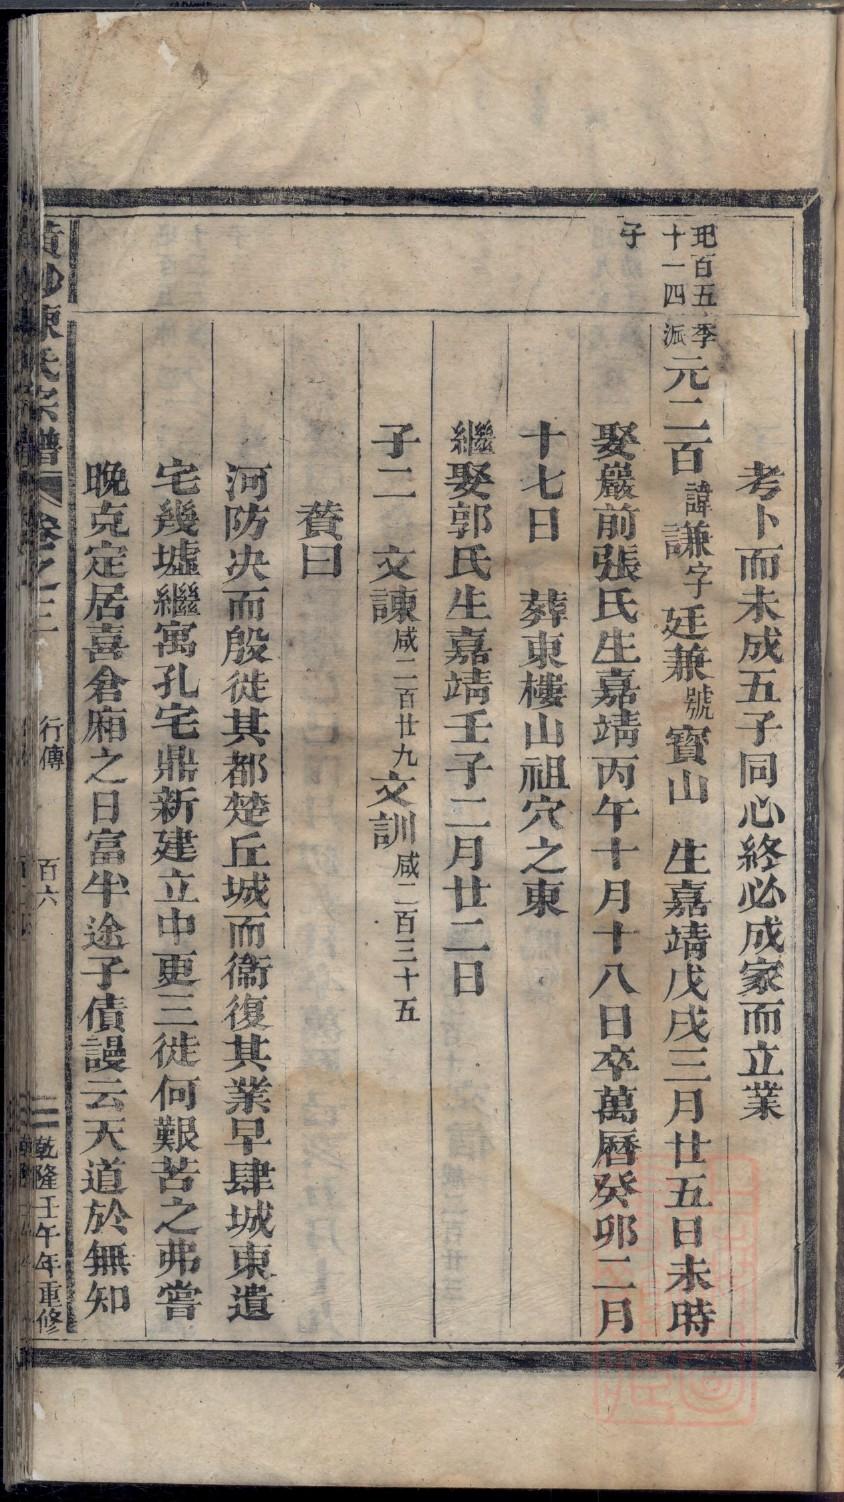 考卜而未成五子同心終必成家而立業
玘百五季
十一四派
子
元二百諱謙字廷兼號寶山　生嘉靖戊戌三月廿五日未時
娶嚴前張氏生嘉靖丙午十月十八日卒萬曆癸卯二月
十七日　葬東樓山祖穴之東
繼娶郭氏生嘉靖壬子二月廿二日
子二　文諫咸二百廿九文訓咸二百三十五
贊曰
河防决而殷徙其都楚丘城而衞復其業早肆城東遺
宅幾墟繼寓孔宅鼎新建立中更三徙何艱苦之弗嘗
晚克定居喜倉廂之日富半途子債謾云天道於無知
陳氏宗譜　卷之三　行傳　百六　乾隆壬午年重修